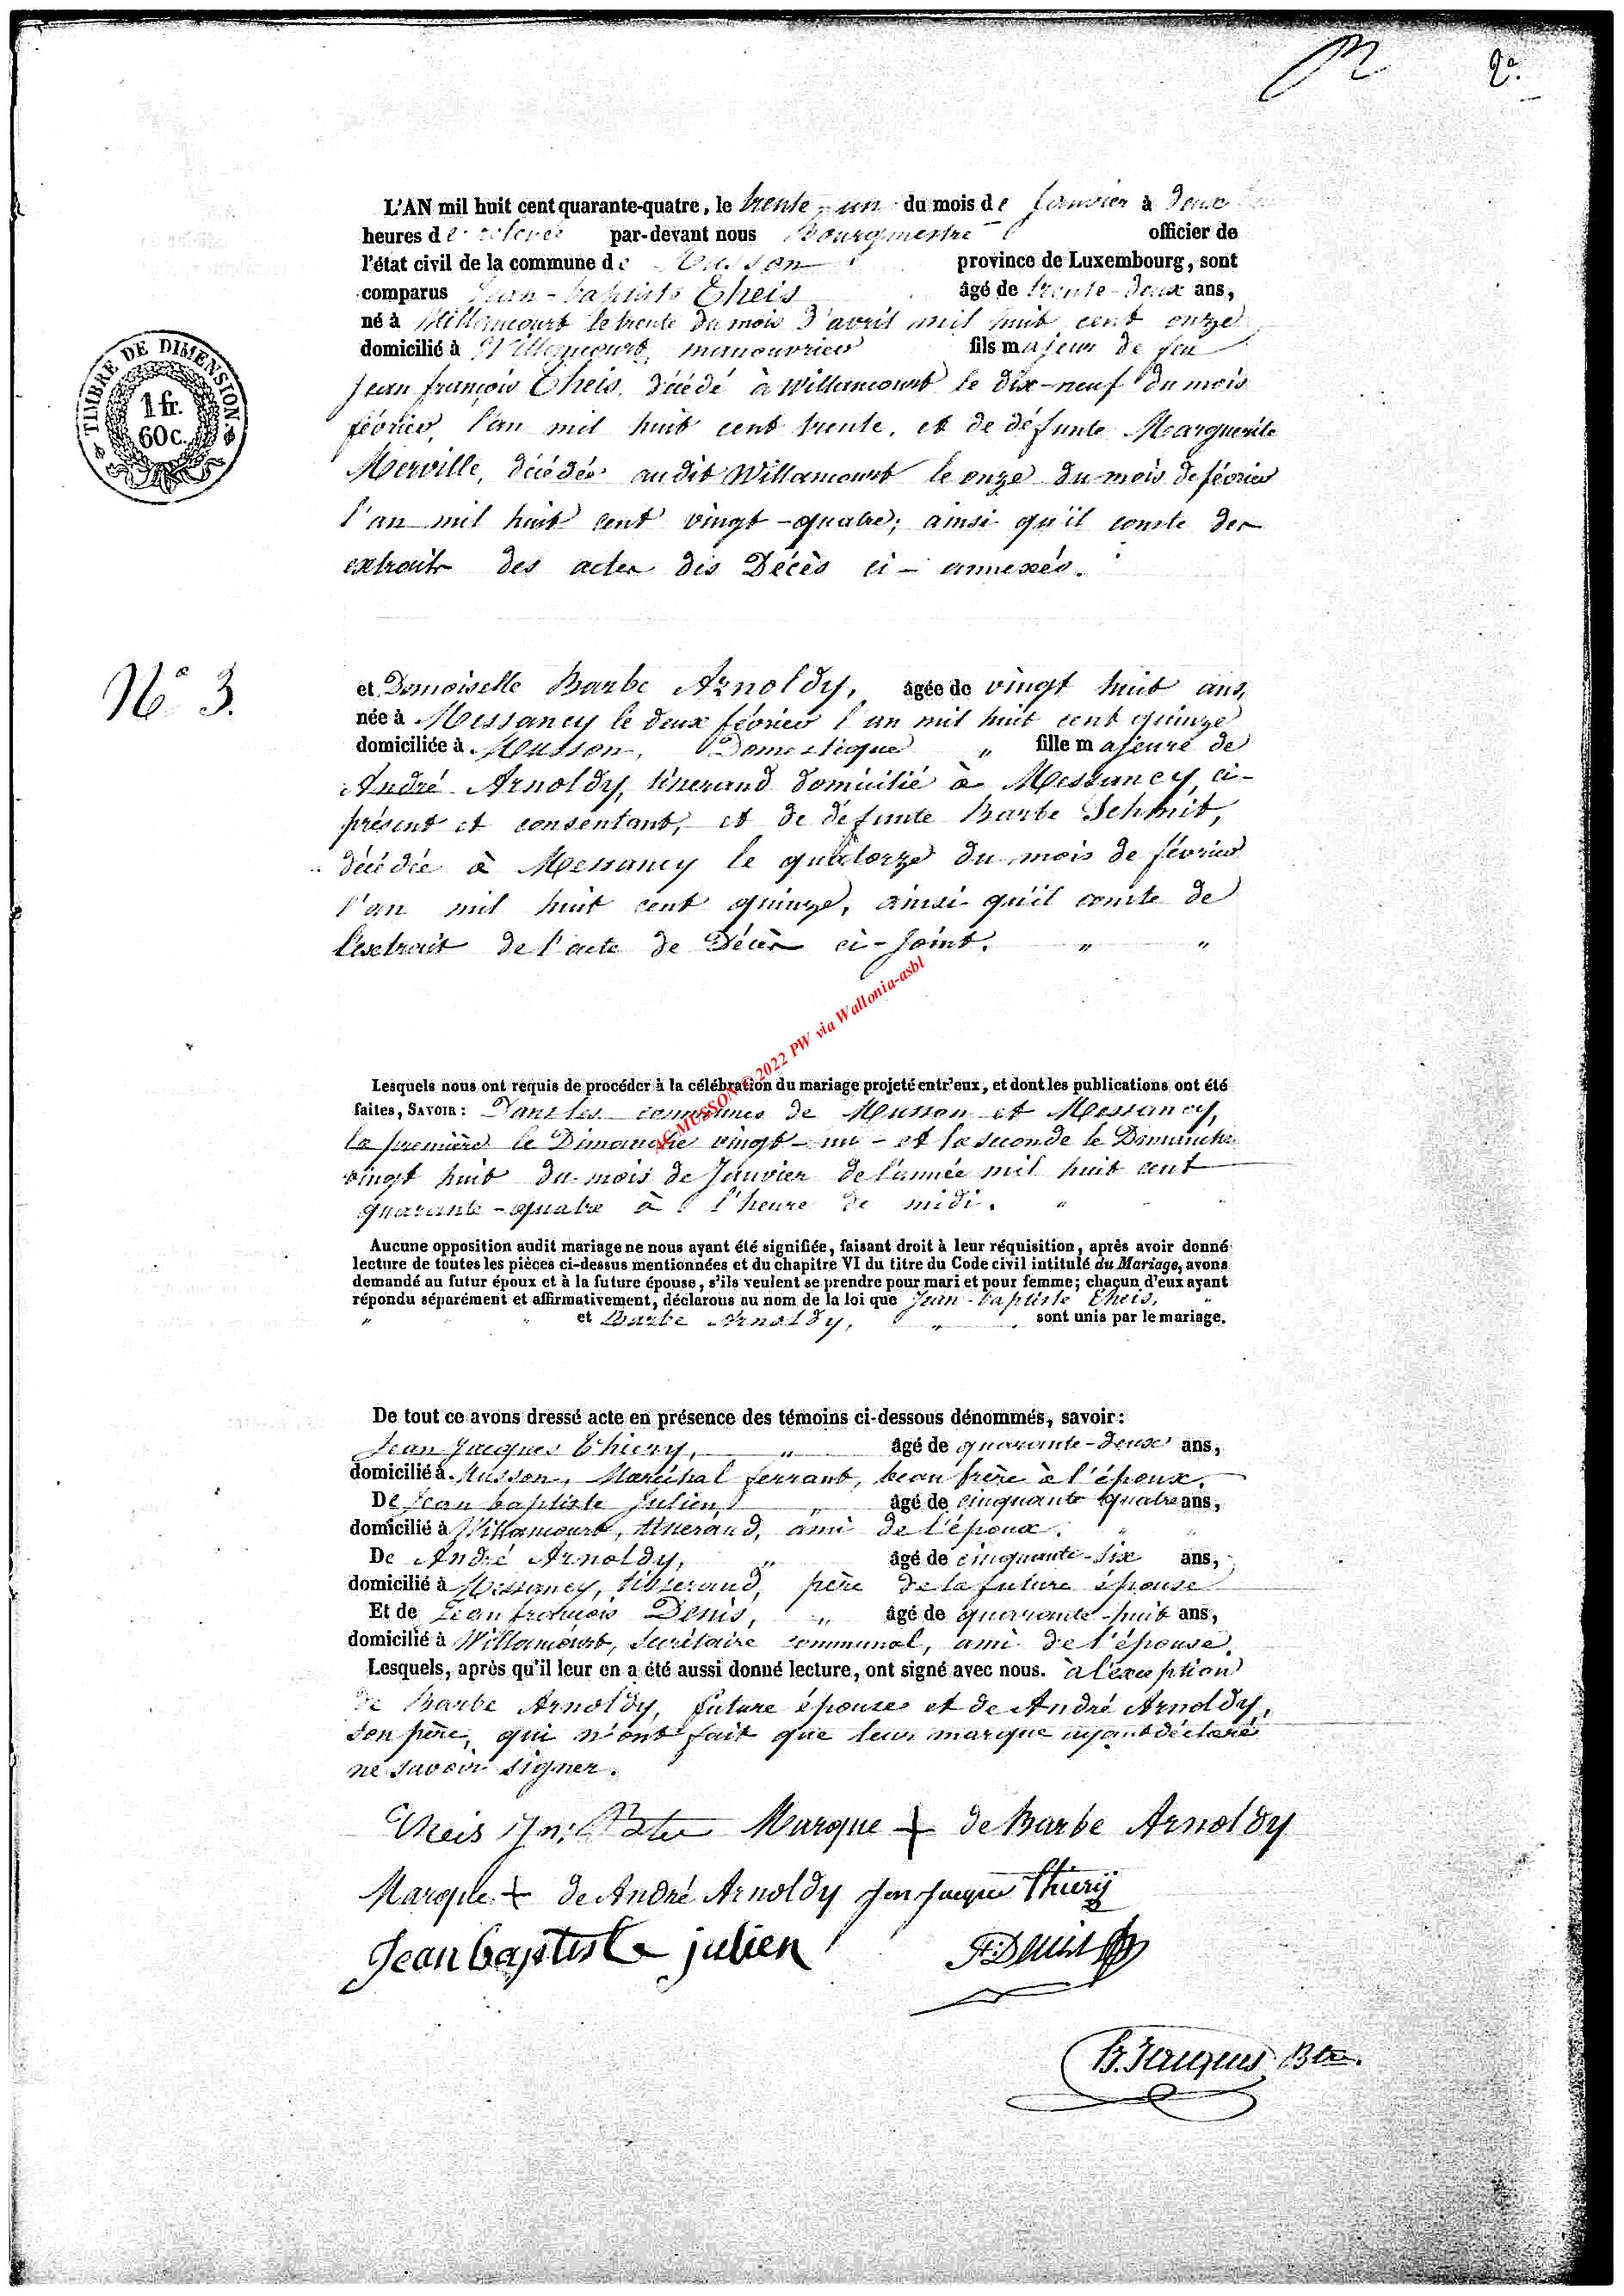 2º.
L'AN mil huit cent quarante-quatre, le trente-un du mois de Janvier à deux
heures de relevée par-devant nous Bourgmestre officier de
l'état civil de la commune de Musson province de Luxembourg, sont
comparus Jean-baptiste Theis âgé de trente-deux ans,
né à Willancourt le trente du mois d'avril mil huit cent onze
domicilié à Willancourt, manouvrier fils majeur de feu
Jean françois Theis, décédé à Willancourt le dix-neuf du mois
février, l'an mil huit cent trente, et de défunte Marguerite
Merville, décédée audit Willancourt le onze du mois de février
l'an mil huit cent vingt-quatre; ainsi qu'il conste des
extraits des actes des Décès ci-annexés.
TIMBRE DE DIMENSION
1 fr.
60 c.
Nº 3.
et Demoiselle Barbe Arnoldy, âgée de vingt huit ans,
née à Messancy le deux février l'an mil huit cent quinze
domiciliée à Musson, Domestique " fille majeure de
André Arnoldy, tisserand domicilié à Messancy, ci-
présent et consentant, et de défunte Barbe Schmit,
décédée à Messancy le quatorze du mois de février
l'an mil huit cent quinze, ainsi qu'il conste de
l'extrait de l'acte de Décès ci-joint. " "
AC-MUSSON © 2022 PW via Wallonia-asbl
Lesquels nous ont requis de procéder à la célébration du mariage projeté entr'eux, et dont les publications ont été
faites, SAVOIR: Dans les communes de Musson et Messancy,
la première le Dimanche vingt-un - et la seconde le Dimanche
vingt huit du mois de Janvier de l'année mil huit cent
quarante-quatre à l'heure de midi. "
Aucune opposition audit mariage ne nous ayant été signifiée, faisant droit à leur réquisition, après avoir donné
lecture de toutes les pièces ci-dessus mentionnées et du chapitre VI du titre du Code civil intitulé du Mariage, avons
demandé au futur époux et à la future épouse, s'ils veulent se prendre pour mari et pour femme; chacun d'eux ayant
répondu séparément et affirmativement, déclarons au nom de la loi que Jean-baptiste Theis,
" " et Barbe Arnoldy, " sont unis par le mariage.
De tout ce avons dressé acte en présence des témoins ci-dessous dénommés, savoir:
Jean Jacques Thiery, " âgé de quarante-deux ans,
domicilié à Musson, Maréchal ferrant, beau frère à l'époux.
De Jean baptiste Julien " âgé de cinquante quatre ans,
domicilié à Willancourt, tisserand, ami de l'époux. " "
De André Arnoldy, " âgé de cinquante-six ans,
domicilié à Messancy, tisserand, père de la future épouse
Et de Jean françois Denis, " âgé de quarante-huit ans,
domicilié à Willancourt, secrétaire communal, ami de l'épouse.
Lesquels, après qu'il leur en a été aussi donné lecture, ont signé avec nous. à l'exception
de Barbe Arnoldy, future épouse et de André Arnoldy,
son père, qui n'ont fait que leur marque ayant déclaré
ne savoir signer.
Theis Jn. Bte Marque + de Barbe Arnoldy
Marque + de André Arnoldy Jean Jacques Thiery
Jean baptiste julien JF Denis
B. Jacques Btre.